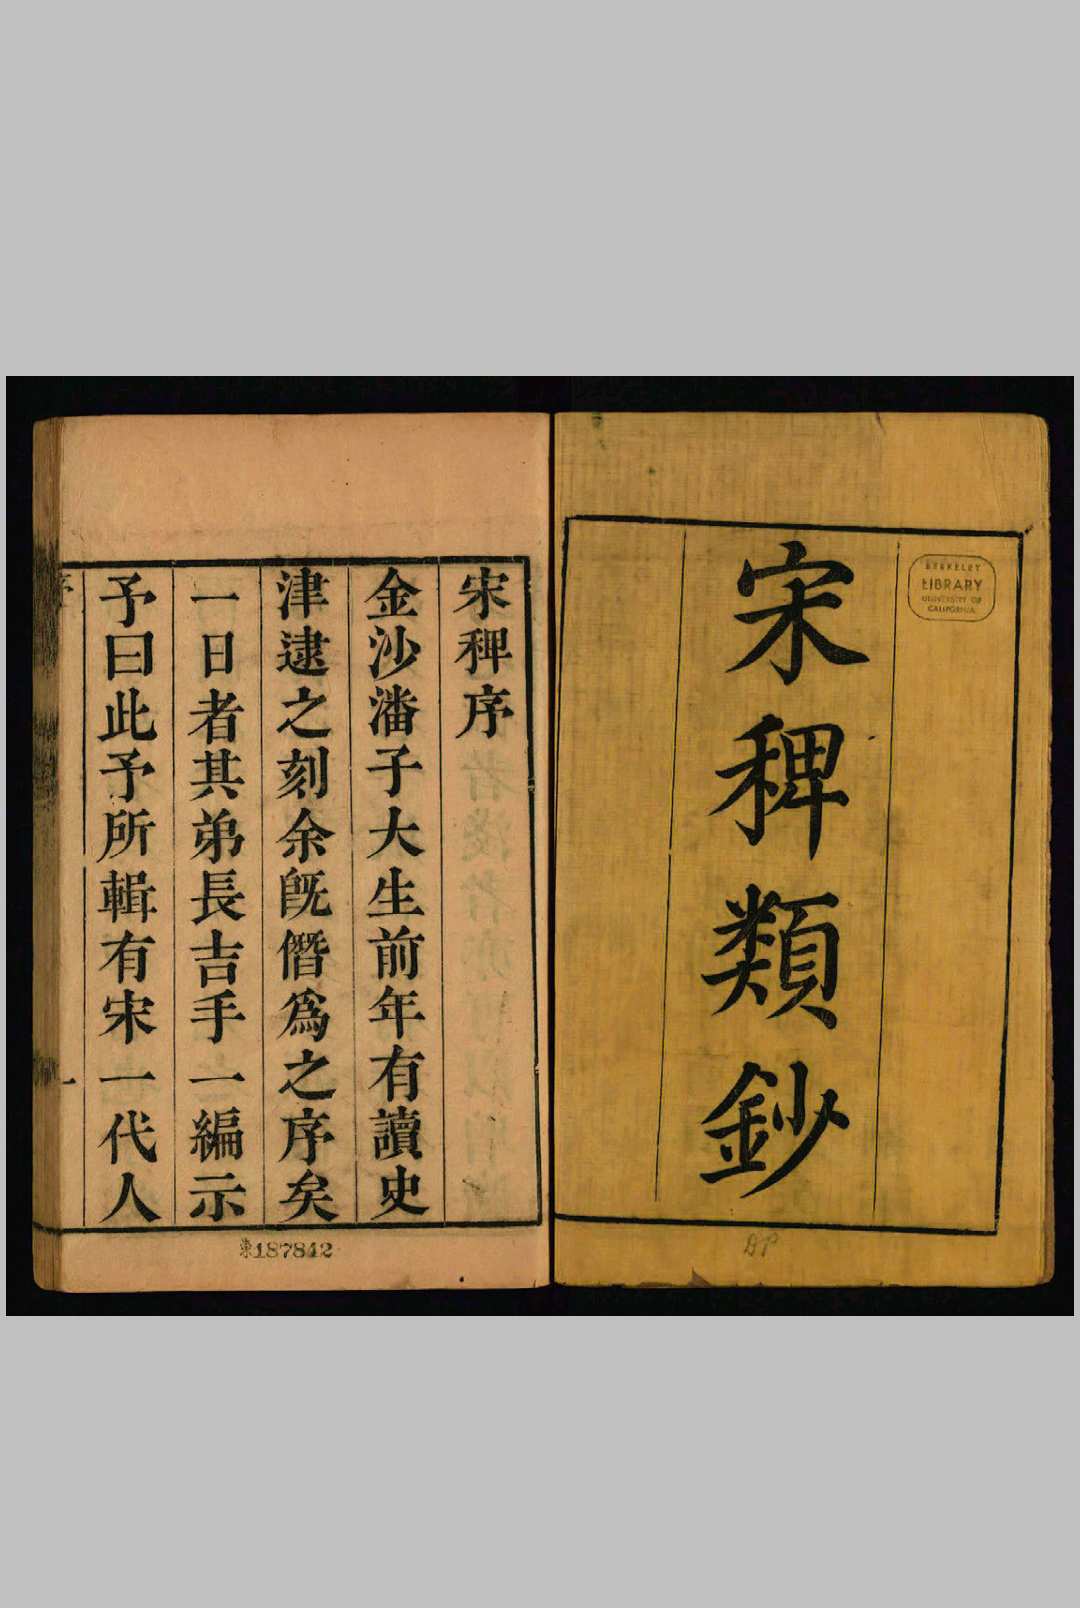 宋稗類鈔
BERKELEY
LIBRARY
UNIVERSITY OF
CALIFORNIA
DP
宋稗序
金沙潘子大生前年有讀史
津逮之刻余旣僭爲之序矣
一日者其弟長吉手一編示
予曰此予所輯有宋一代人
序
一
東187842